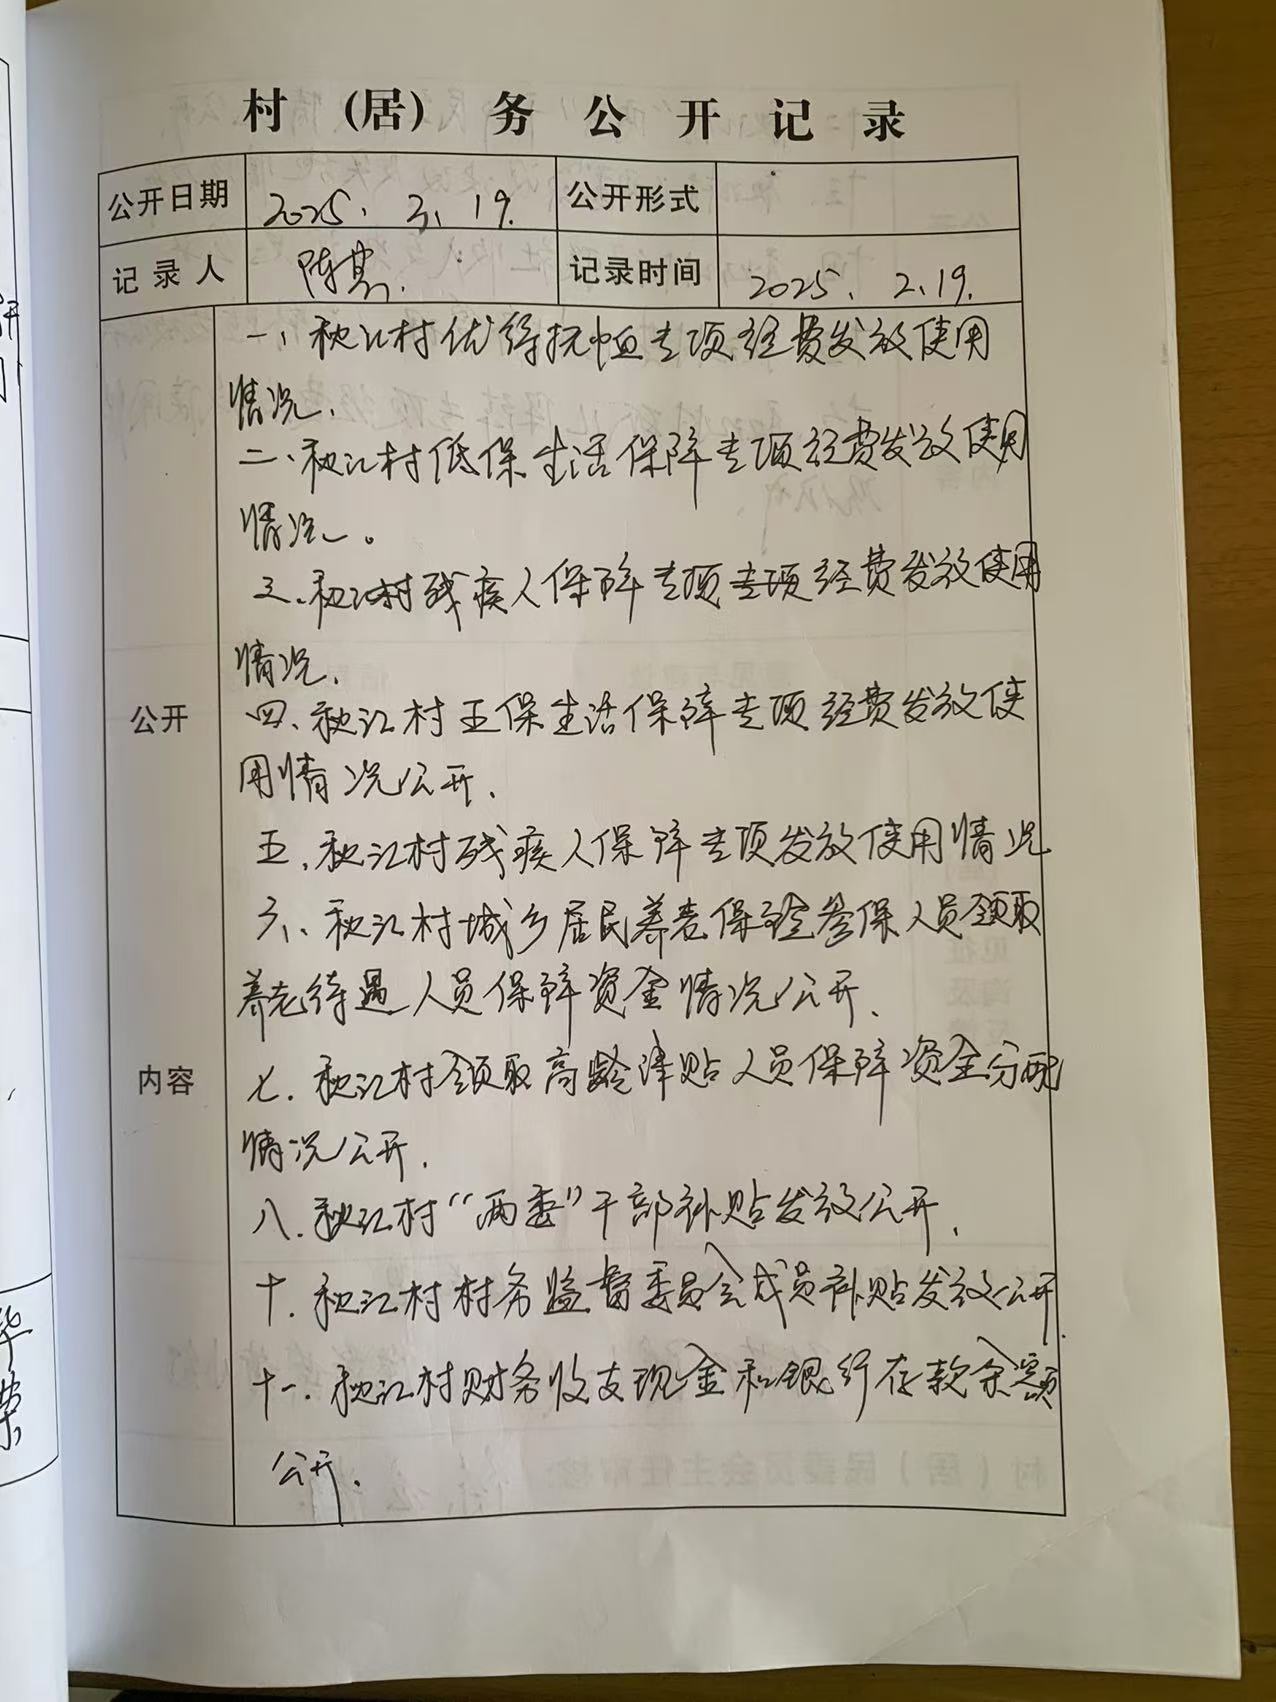 村（居）务公开记录
公开日期 2025、3、19. 公开形式
记录人 陈 记录时间 2025、2.19.
一、秋江村优待抚恤专项经费发放使用
情况.
二、秋江村低保生活保障专项经费发放使用
情况。
三、秋江村残疾人保障专项专项经费发放使用
情况.
公开
四、秋江村五保生活保障专项经费发放使
用情况公开.
五.秋江村残疾人保障专项发放使用情况
六、秋江村城乡居民养老保险参保人员领取
养老待遇人员保障资金情况公开、
内容
七.秋江村领取高龄津贴人员保障资金分配
情况公开.
八.秋江村“两委”干部补贴发放公开.
十.秋江村村务监督委员会成员补贴发放公开.
十一.秋江村财务收支现金和银行存款余额
公开.